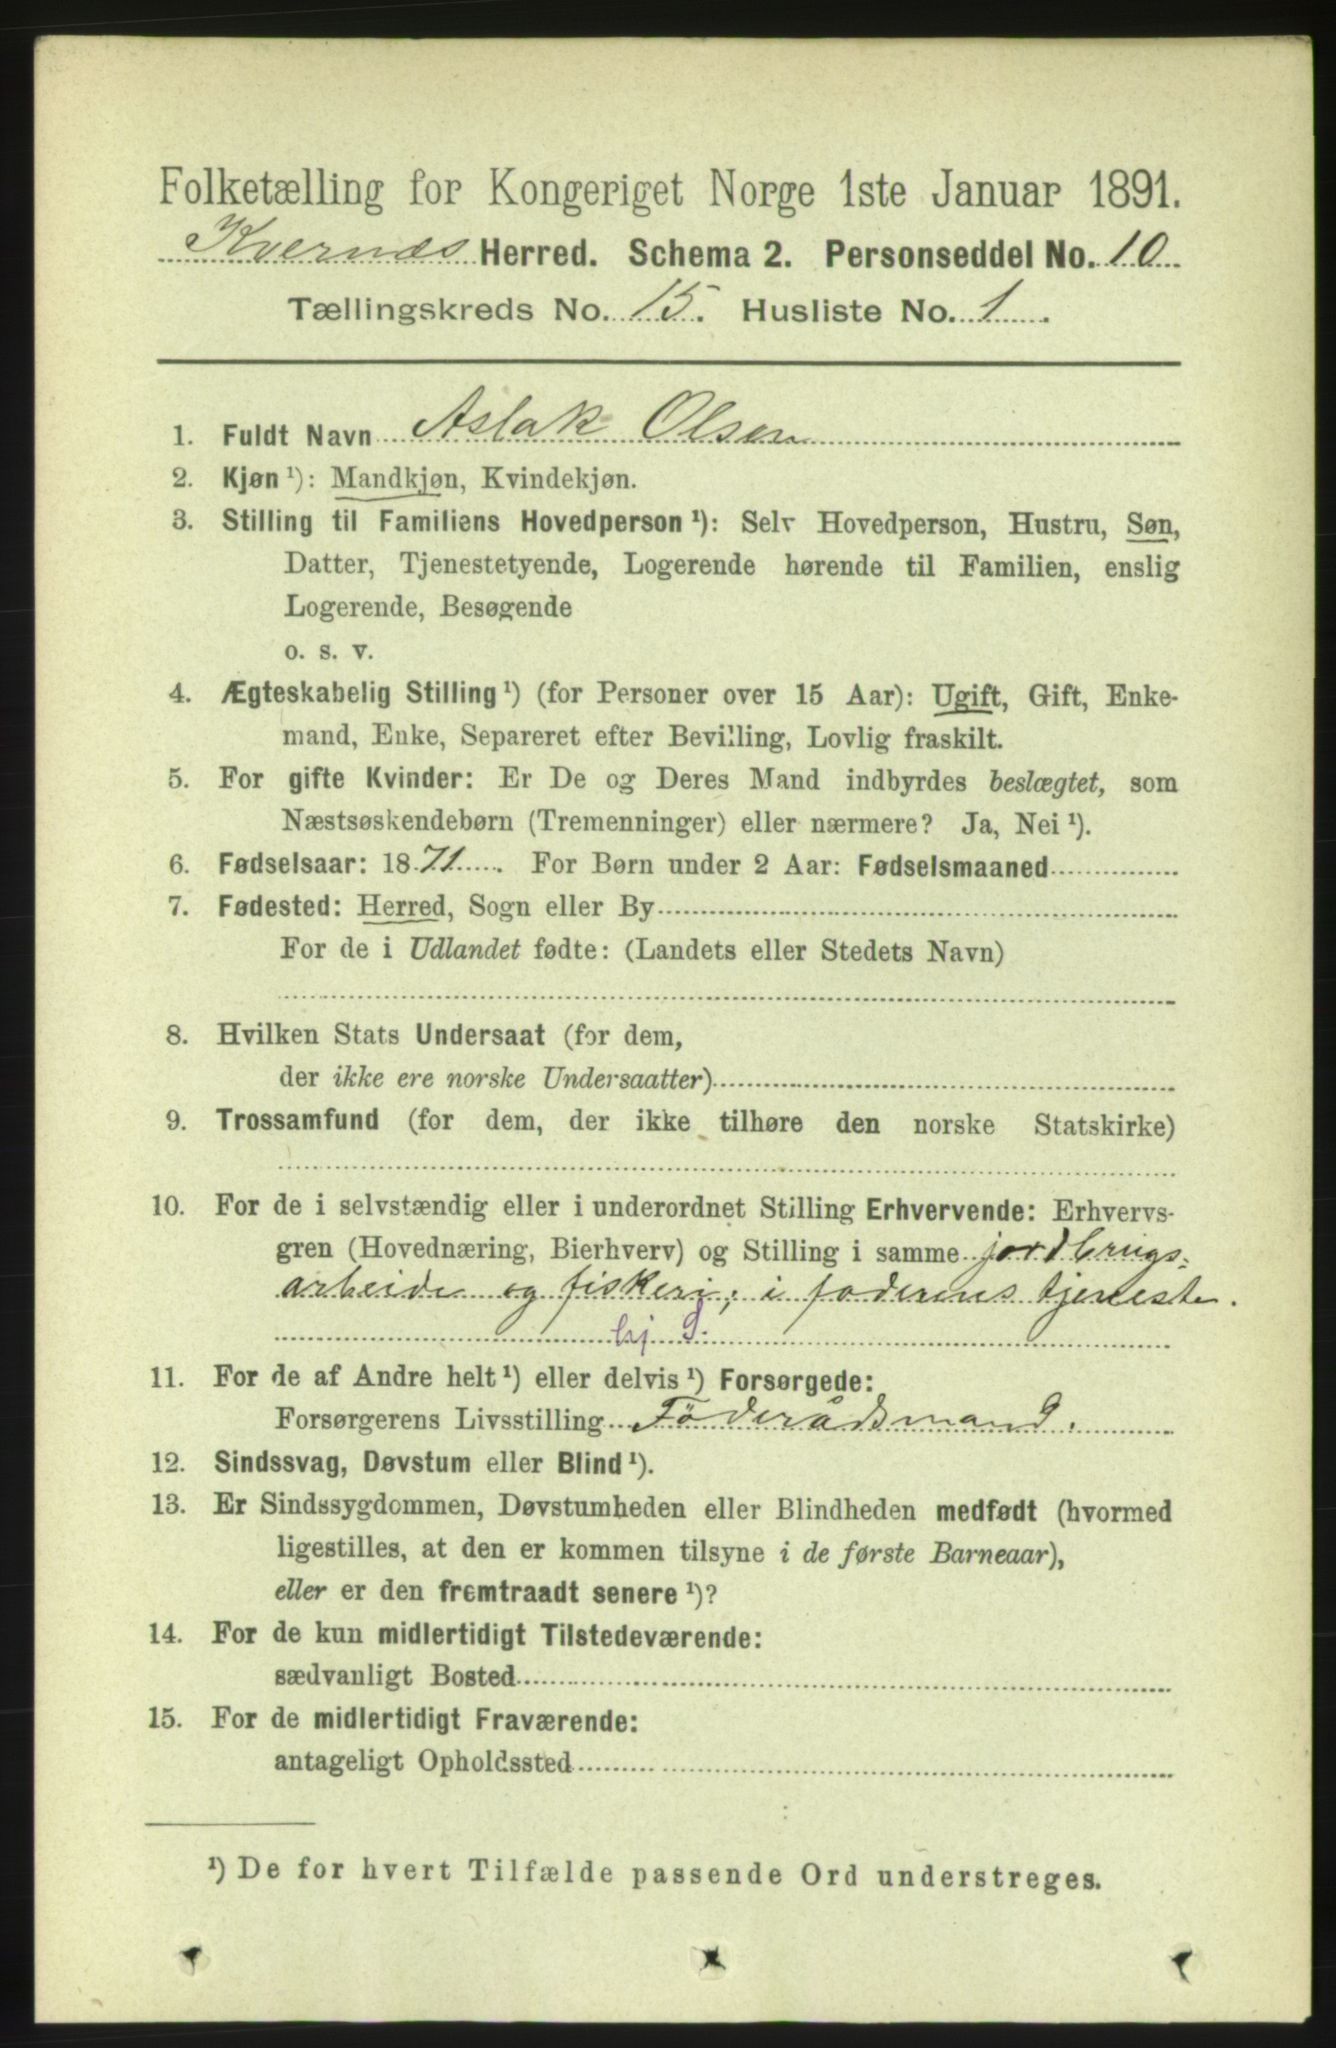 Folketælling for Kongeriget Norge 1ste Januar 1891.
Kvernæs Herred. Schema 2. Personseddel No. 10
Tællingskreds No. 15. Husliste No. 1
1. Fuldt Navn Aslak Olsen
2. Kjøn ¹): Mandkjøn, Kvindekjøn.
3. Stilling til Familiens Hovedperson ¹): Selv Hovedperson, Hustru, Søn,
Datter, Tjenestetyende, Logerende hørende til Familien, enslig
Logerende, Besøgende
o. s. v.
4. Ægteskabelig Stilling ¹) (for Personer over 15 Aar): Ugift, Gift, Enke-
mand, Enke, Separeret efter Bevilling, Lovlig fraskilt.
5. For gifte Kvinder: Er De og Deres Mand indbyrdes beslægtet, som
Næstsøskendebørn (Tremenninger) eller nærmere? Ja, Nei ¹).
6. Fødselsaar: 1871. For Børn under 2 Aar: Fødselsmaaned
7. Fødested: Herred, Sogn eller By
For de i Udlandet fødte: (Landets eller Stedets Navn)
8. Hvilken Stats Undersaat (for dem,
der ikke ere norske Undersaatter)
9. Trossamfund (for dem, der ikke tilhøre den norske Statskirke)
10. For de i selvstændig eller i underordnet Stilling Erhvervende: Erhvervs-
gren (Hovednæring, Bierhverv) og Stilling i samme jordbrugs-
arbeide og fiskeri; i faderens tjeneste.
hj. S.
11. For de af Andre helt ¹) eller delvis ¹) Forsørgede:
Forsørgerens Livsstilling Föderådsmand.
12. Sindssvag, Døvstum eller Blind ¹).
13. Er Sindssygdommen, Døvstumheden eller Blindheden medfødt (hvormed
ligestilles, at den er kommen tilsyne i de første Barneaar),
eller er den fremtraadt senere ¹)?
14. For de kun midlertidigt Tilstedeværende:
sædvanligt Bosted
15. For de midlertidigt Fraværende:
antageligt Opholdssted
¹) De for hvert Tilfælde passende Ord understreges.